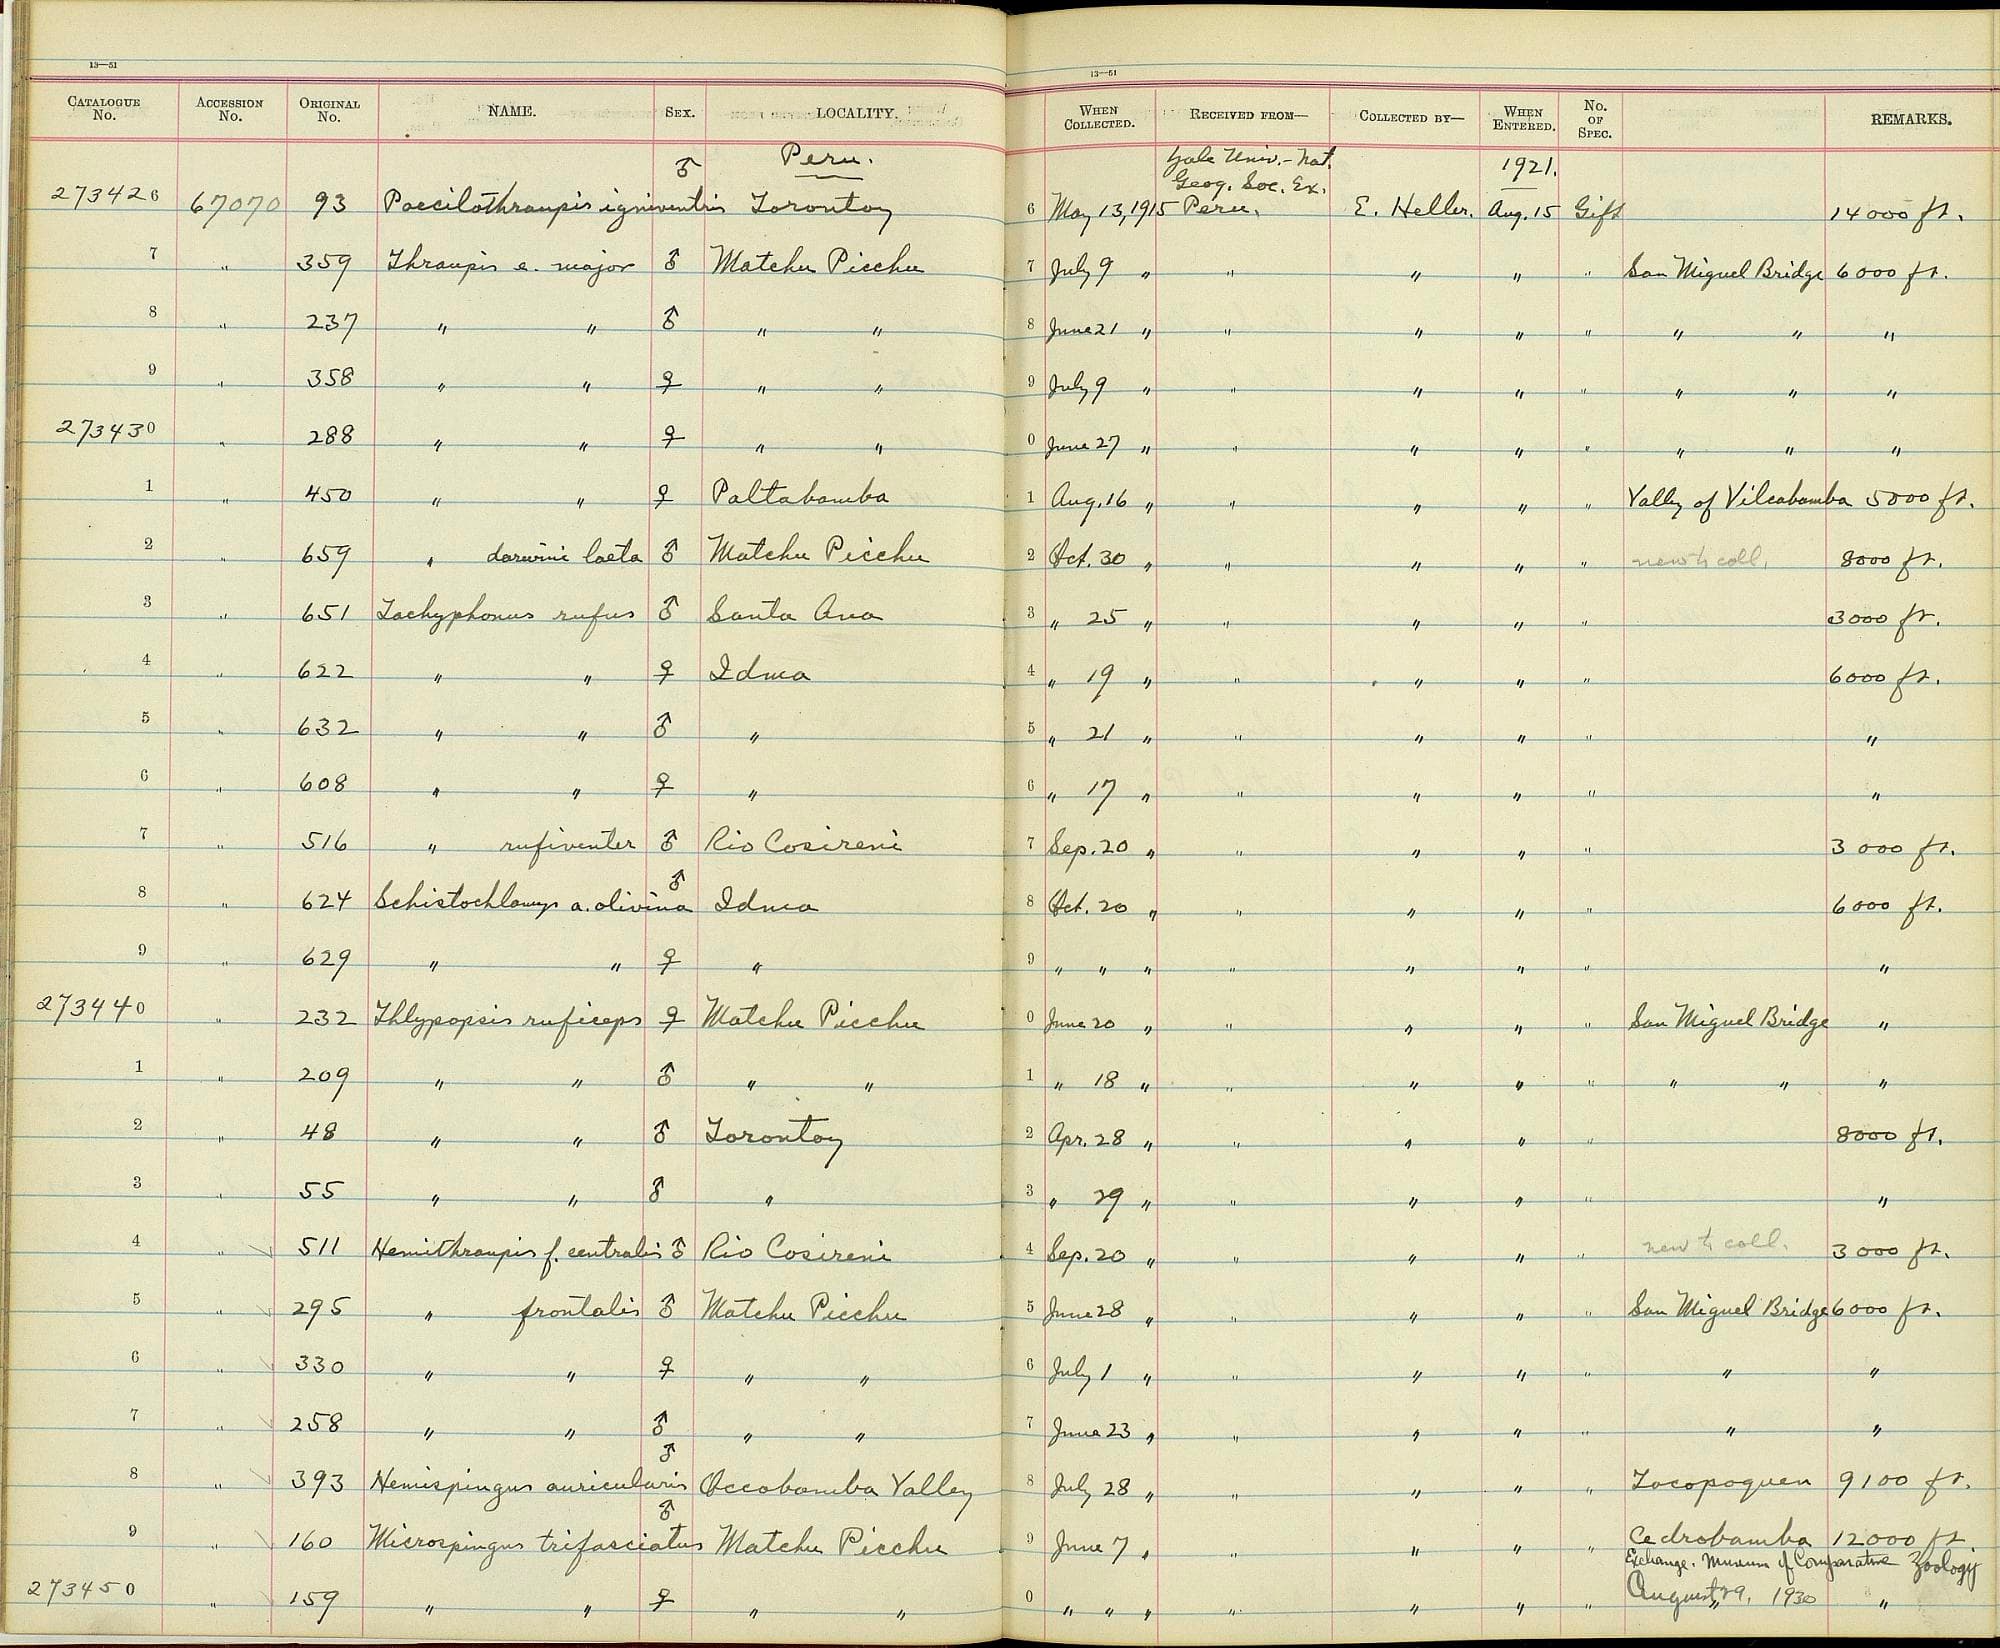 13—51 13—51
CATALOGUE No. ACCESSION No. ORIGINAL No. NAME. SEX. LOCALITY. WHEN COLLECTED. RECEIVED FROM— COLLECTED BY— WHEN ENTERED. No. OF SPEC. REMARKS.
♂ Peru. Yale Univ.-Nat. Geog. Soc. Ex. 1921.
273426 67070 93 Poecilothraupis igniventris Torontoy 6 May 13, 1915 Peru. E. Heller. Aug. 15 Gift 14000 ft.
7 " 359 Thraupis e. major ♂ Matchu Picchu 7 July 9 " " " " " San Miguel Bridge 6000 ft.
8 " 237 " " ♂ " " 8 June 21 " " " " " " " "
9 " 358 " " ♀ " " 9 July 9 " " " " " " " "
273430 " 288 " " ♀ " " 0 June 27 " " " " " " " "
1 " 450 " " ♀ Paltabamba 1 Aug. 16 " " " " " Valley of Vilcabamba 5000 ft.
2 " 659 " darwini laeta ♂ Matchu Picchu 2 Oct. 30 " " " " " new to coll. 8000 ft.
3 " 651 Tachyphonus rufus ♂ Santa Ana 3 " 25 " " " " " 3000 ft.
4 " 622 " " ♀ Idma 4 " 19 " " " " " 6000 ft.
5 " 632 " " ♂ " 5 " 21 " " " " " "
6 " 608 " " ♀ " 6 " 17 " " " " " "
7 " 516 " rufiventer ♂ Rio Cosireni 7 Sep. 20 " " " " " 3000 ft.
8 " 624 Schistochlamys a. olivina ♂ Idma 8 Oct. 20 " " " " " 6000 ft.
9 " 629 " " ♀ " 9 " " " " " " " "
273440 " 232 Thlypopsis ruficeps ♀ Matchu Picchu 0 June 20 " " " " " San Miguel Bridge "
1 " 209 " " ♂ " " 1 " 18 " " " " " " " "
2 " 48 " " ♂ Torontoy 2 Apr. 28 " " " " " 8000 ft.
3 " 55 " " ♂ " 3 " 29 " " " " " "
4 " 511 Hemithraupis f. centralis ♂ Rio Cosireni 4 Sep. 20 " " " " " new to coll. 3000 ft.
5 " 295 " frontalis ♂ Matchu Picchu 5 June 28 " " " " " San Miguel Bridge 6000 ft.
6 " 330 " " ♀ " " 6 July 1 " " " " " " "
7 " 258 " " ♂ " " 7 June 23 " " " " " " "
8 " 393 Hemispingus auricularis ♂ Occobamba Valley 8 July 28 " " " " " Tocopoquen 9100 ft.
9 " 160 Microspingus trifasciatus ♂ Matchu Picchu 9 June 7 " " " " " Cedrobamba 12000 ft.
Exchange. Museum of Comparative Zoology
273450 " 159 " " ♀ " " 0 " " " " " " " August 29, 1930 " "